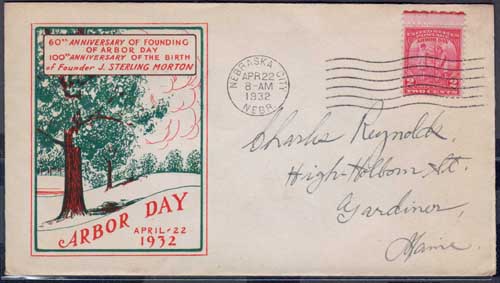 60TH ANNIVERSARY OF FOUNDING
OF ARBOR DAY
100TH ANNIVERSARY OF THE BIRTH
of Founder J. STERLING MORTON
ARBOR DAY
APRIL-22
1932
NEBRASKA CITY
APR 22
8-AM
1932
NEBR.
UNITED STATES
POSTAGE
ARBOR DAY
2 2
TWO CENTS
Charles Reynolds,
High-Holborn St.
Gardiner,
Maine.